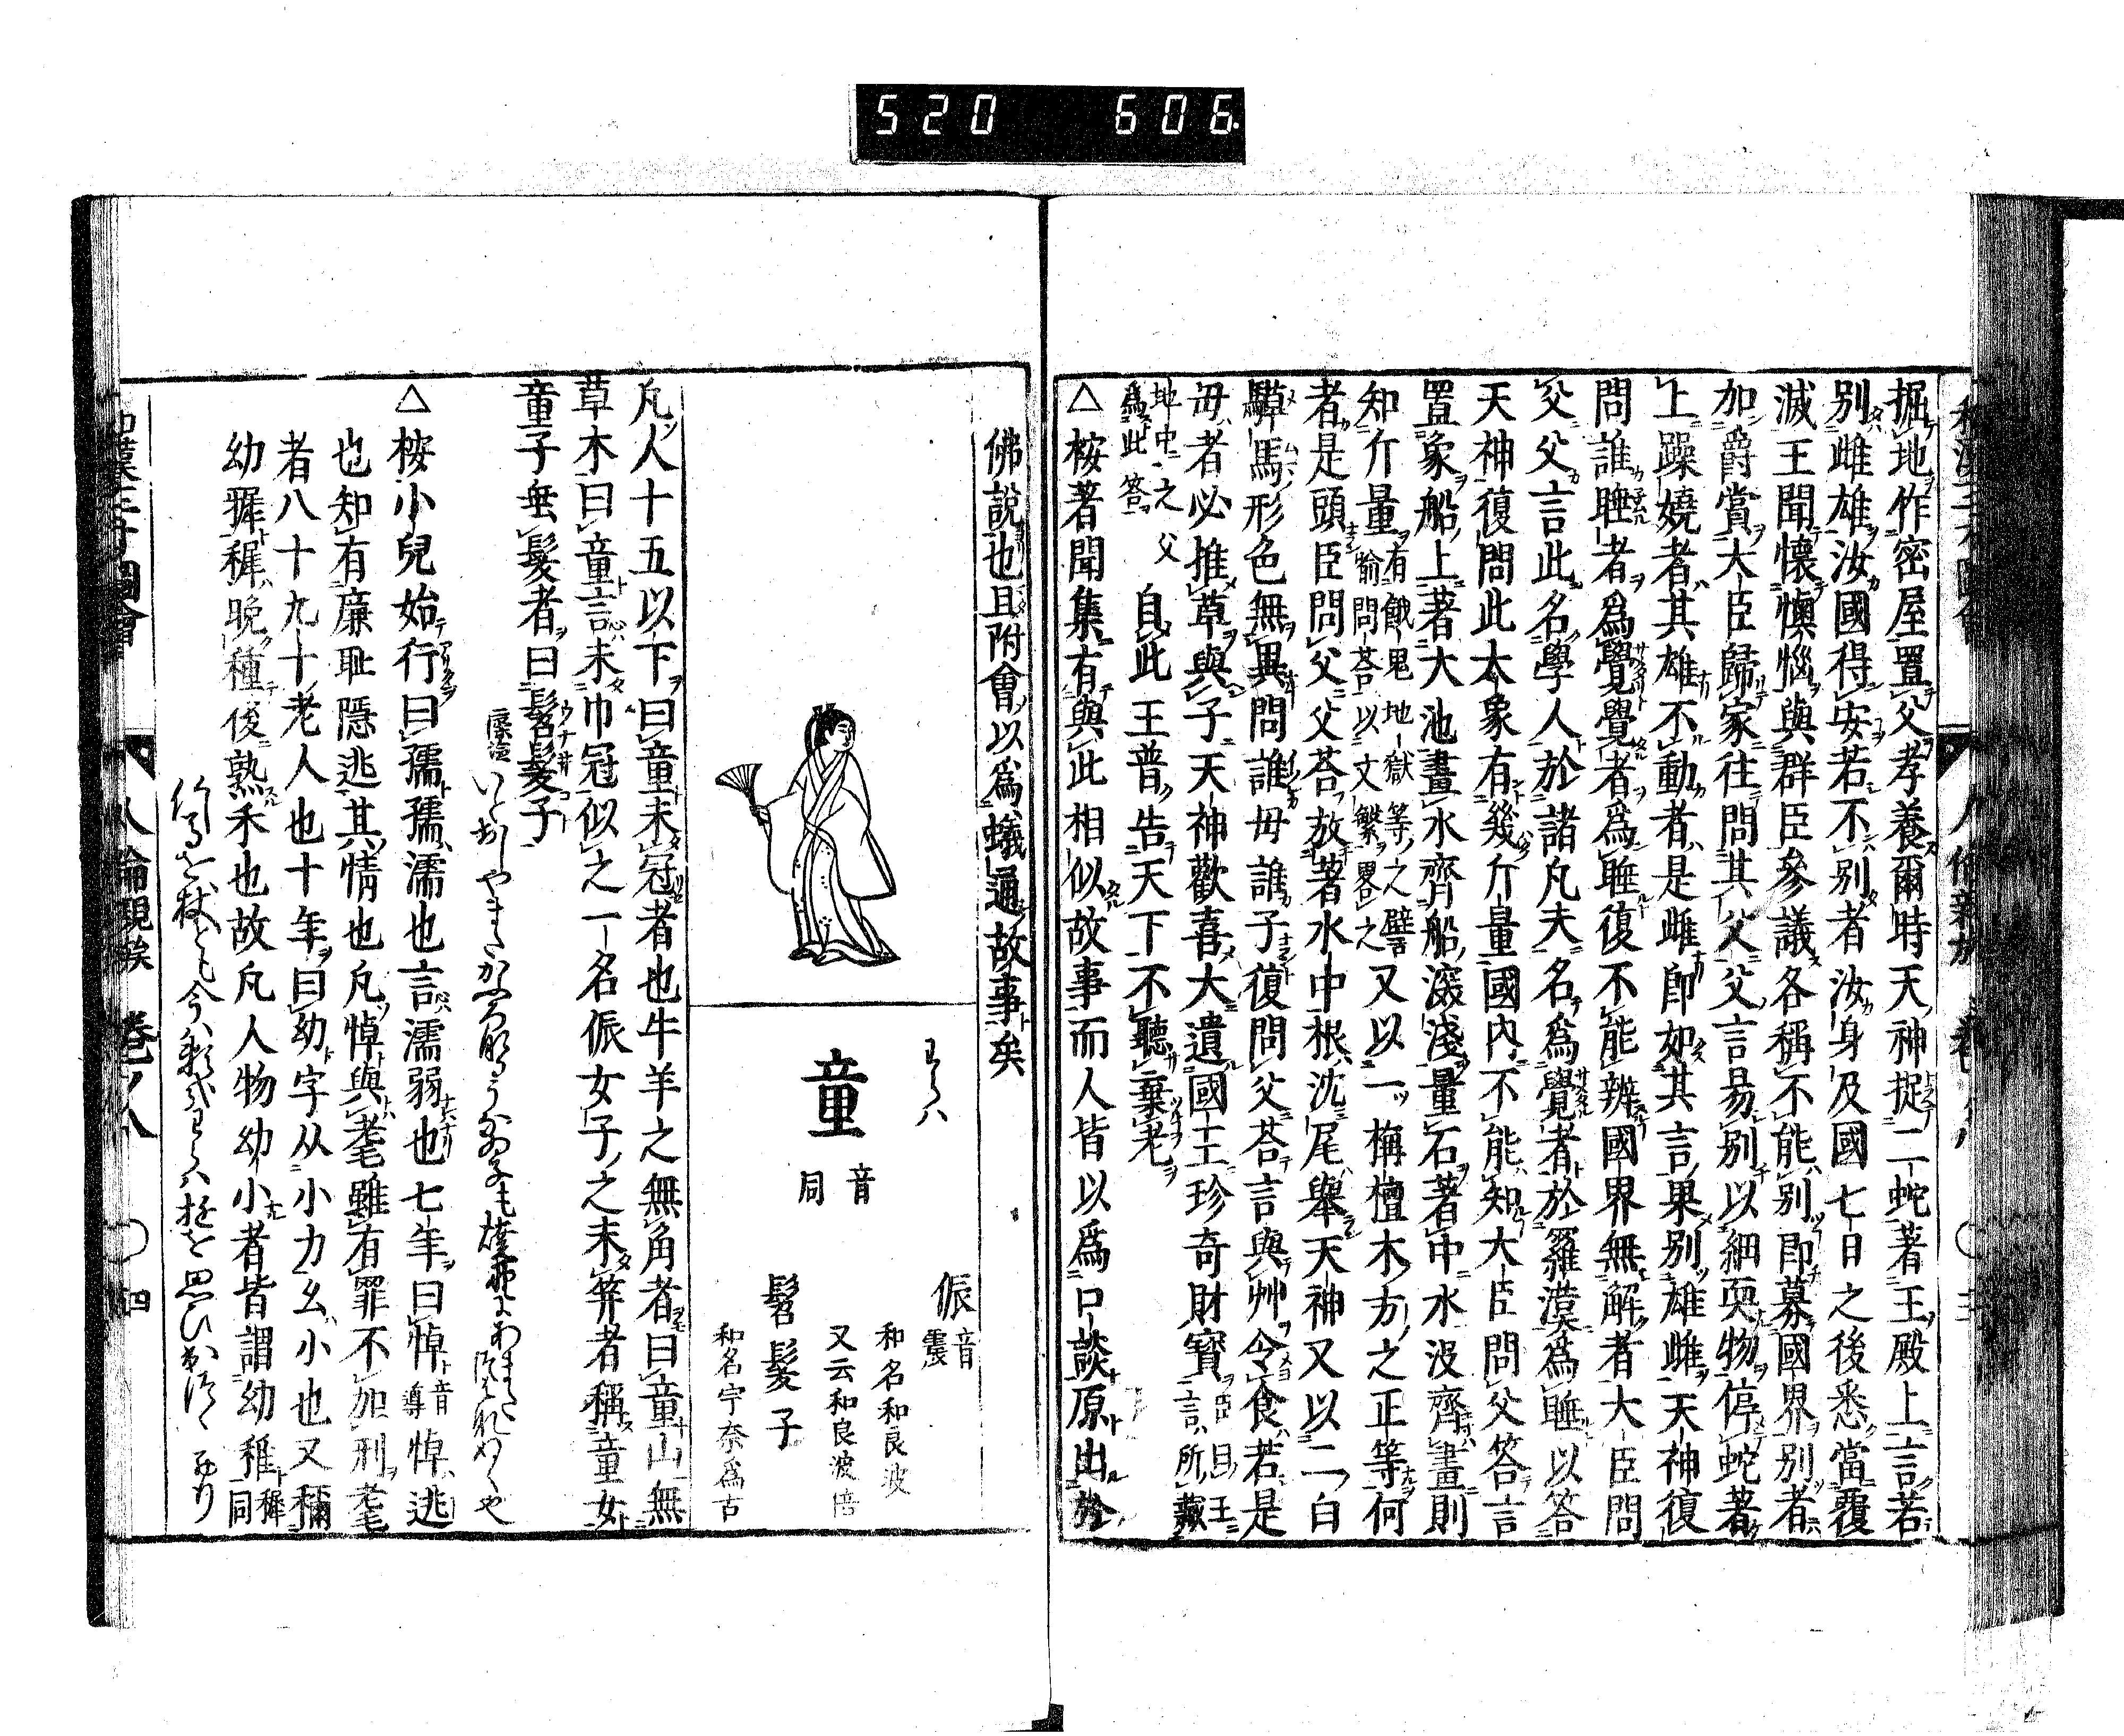 520 606
掘地作密屋置父孝養爾時天神捉二蛇著王殿上言若
別雌雄汝國得安若不別者汝身及國七日之後悉當覆
滅王聞懷懊惱與群臣參議各稱不能別即募國界別者
加爵賞大臣歸家往問其父父言易別以細耎物停蛇著
上躁嬈者其雄不動者是雌即如其言果別雄雌天神復
問誰睡者爲覺覺者爲睡復不能辨國界無解者大臣問
父父言此名學人於諸凡夫名爲覺者於羅漢爲睡以答
天神復問此大象有幾斤量國內不能知大臣問父答言
置象船上著大池畫水齊船深淺量石著中水沒齊畫則
知斤量有餓鬼地獄等之譬喻問荅以文繁畧之又以一栴檀木方之正等何
者是頭臣問父父荅放著水中根沈尾舉天神又以二白
騲馬形色無異問誰母誰子復問父荅言與艸令食若是
母者必推草與子天神歡喜大遺國王珍奇財寳臣曰王言所藏
地中之父爲此答自此王普告天下不聽棄老
△桉著聞集有與此相似故事而人皆以爲口談原出於
佛說也且附會以爲蟻通故事矣
わらハ
童
音同
侲
音震
和名和良波
又云和良波倍
髫髮子
和名宇奈爲古
凡人十五以下曰童未冠者也牛羊之無角者曰童山無
草木曰童言未巾冠似之一名侲女子之未笄者稱童女
童子埀髮者曰髫髮子
△桉小兒始行曰孺孺濡也言濡弱也七年曰悼音導悼逃
也知有廉耻隱逃其情也凡悼與耄雖有罪不加刑耄
者八十九十老人也十年曰幼字从小力幺小也又穪
幼穉穉晚種後熟禾也故凡人物幼小者皆謂幼稚穉同
和漢三才圖會
人倫親族 卷ノ八 〇四